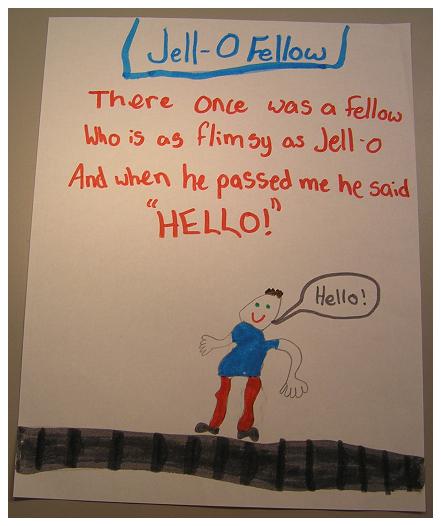 Jell-O Fellow
There once was a fellow
Who is as flimsy as Jell-O
And when he passed me he said
"HELLO!"
Hello!